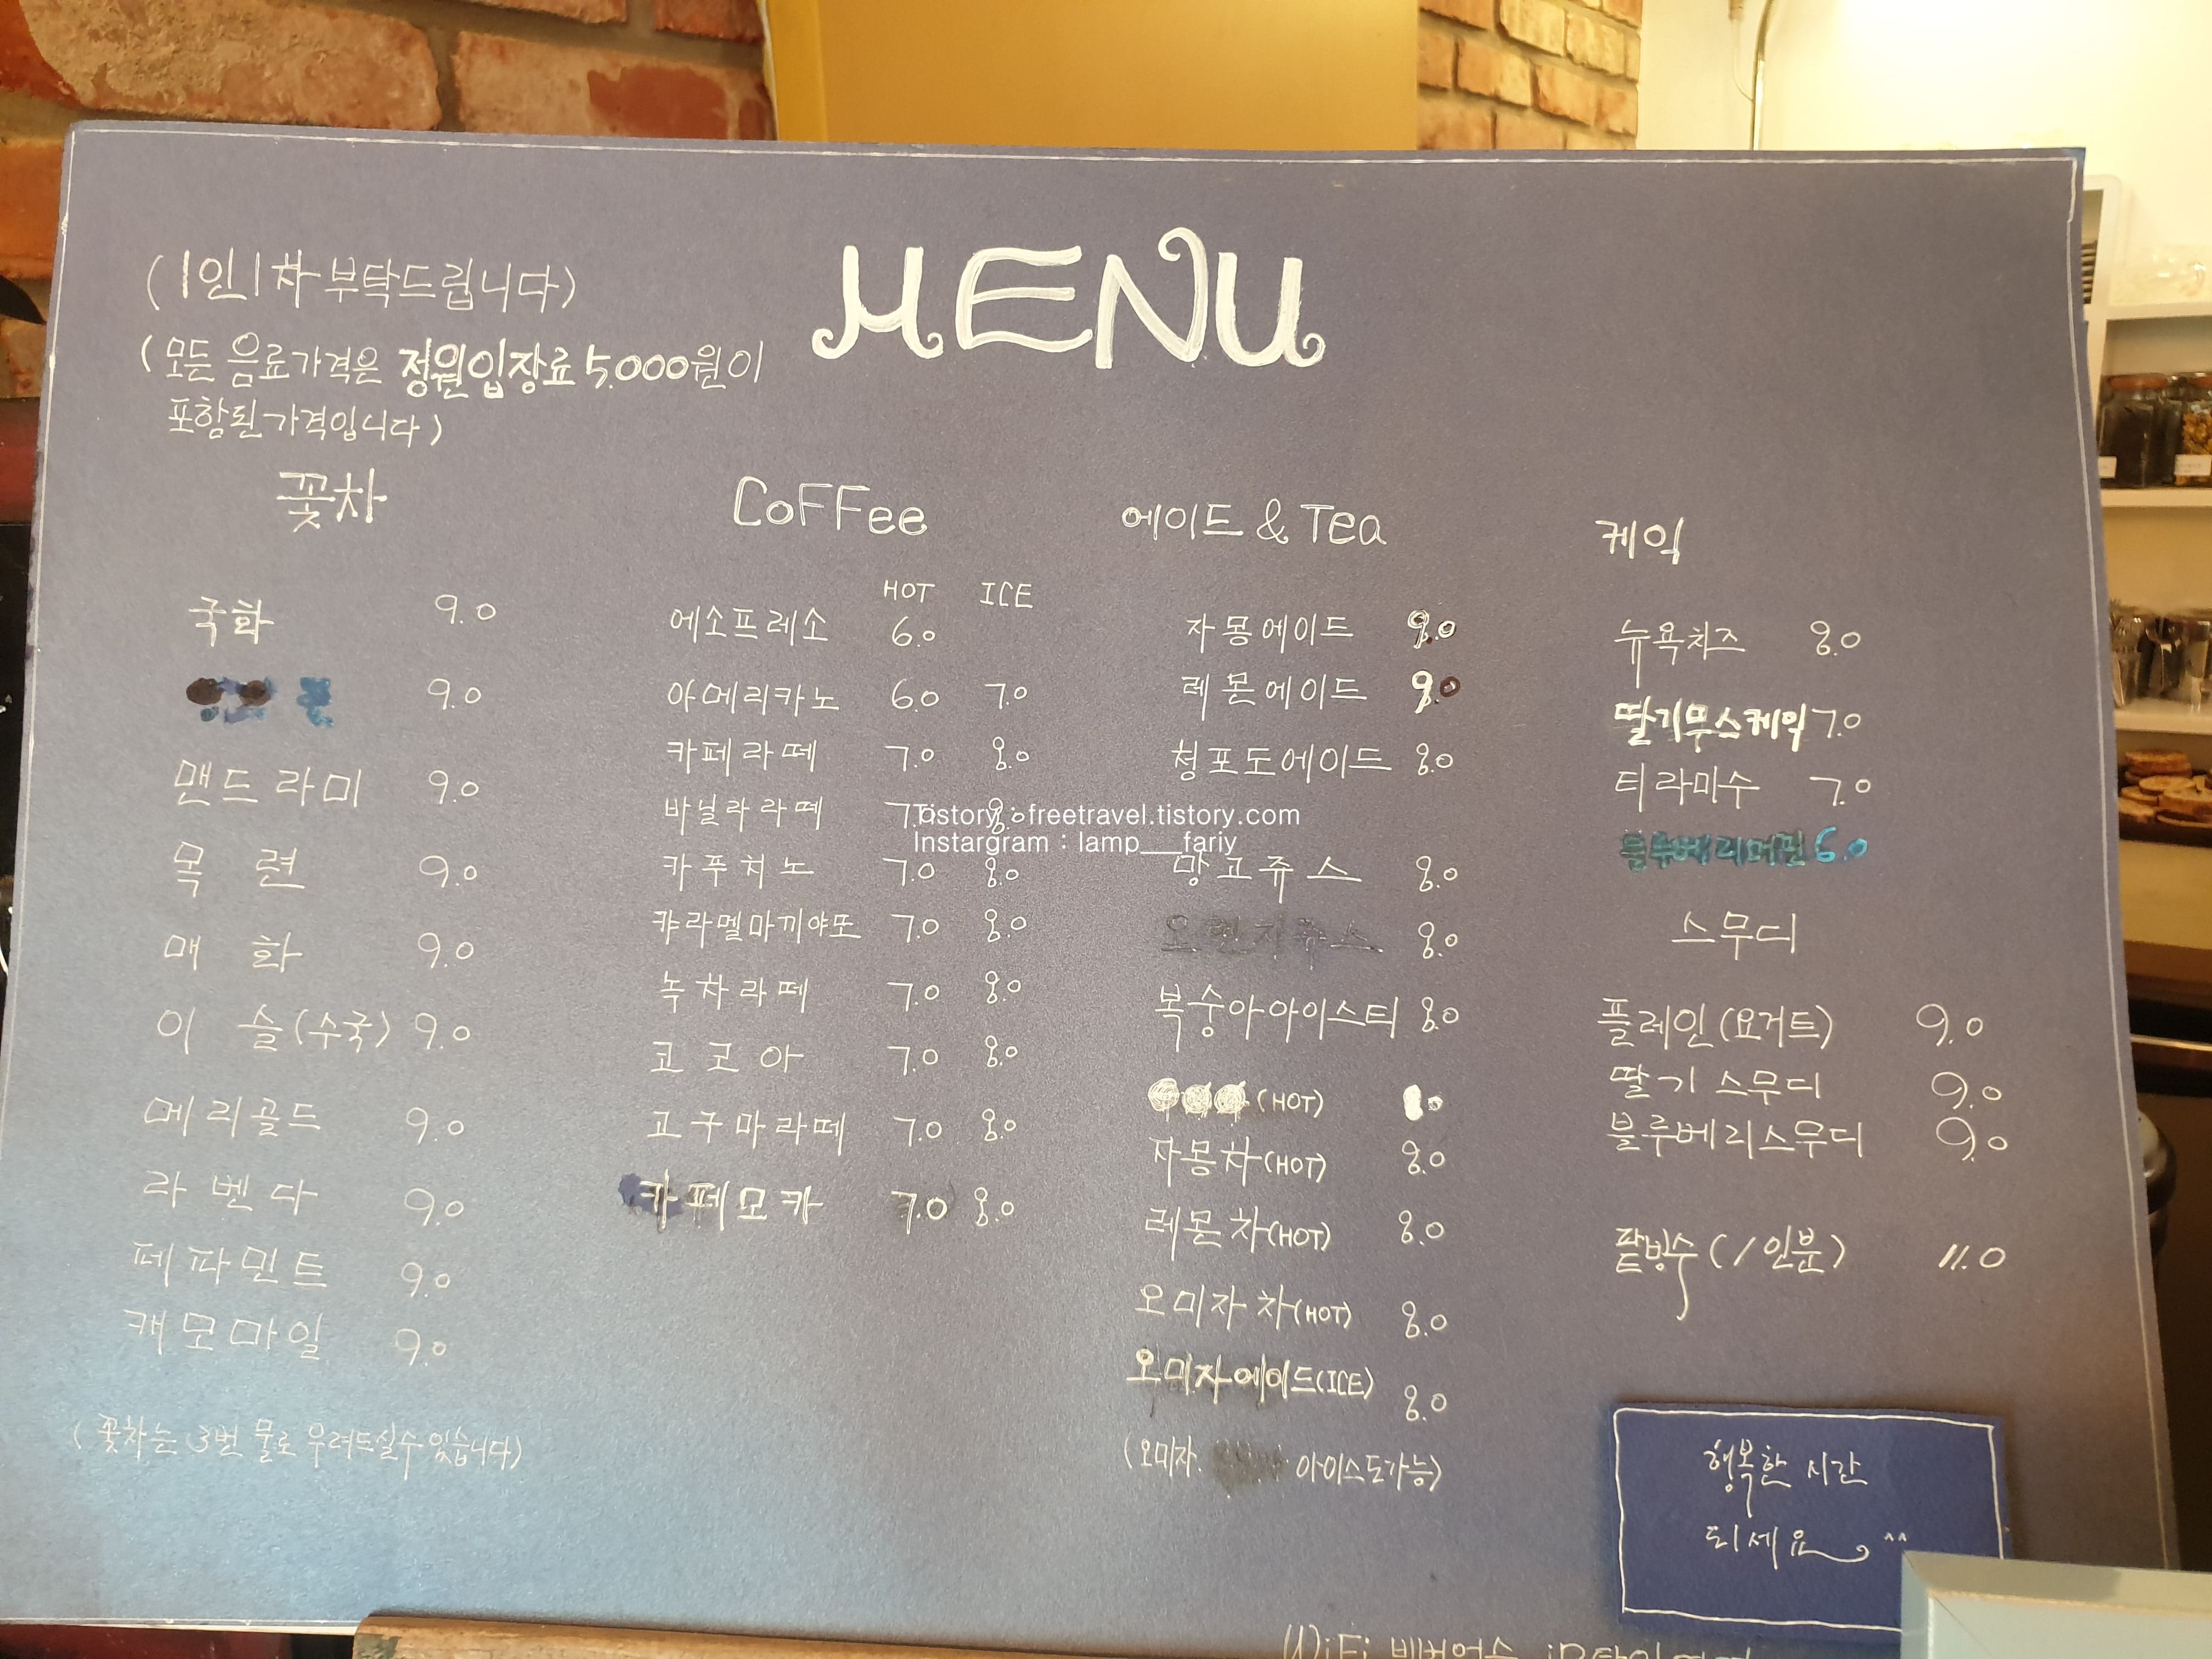 MENU
(1인1차 부탁드립니다)
(모든 음료가격은 정원입장료 5.000원이
포함된 가격입니다)
꽃차
국화 9.0
9.0
맨드라미 9.0
목련 9.0
매화 9.0
이슬(수국) 9.0
메리골드 9.0
라벤다 9.0
페파민트 9.0
캐모마일 9.0
(꽃차는 3번 물로 우려드실수 있습니다)
CoFFee
HOT ICE
에소프레소 6.0
아메리카노 6.0 7.0
카페라떼 7.0 8.0
바닐라라떼 7.0 8.0
카푸치노 7.0 8.0
캬라멜마끼야또 7.0 8.0
녹차라떼 7.0 8.0
코코아 7.0 8.0
고구마라떼 7.0 8.0
카페모카 7.0 8.0
에이드 & Tea
자몽에이드 9.0
레몬에이드 9.0
청포도에이드 8.0
망고쥬스 8.0
오렌지쥬스 8.0
복숭아아이스티 8.0
(HOT)
자몽차(HOT) 8.0
레몬차(HOT) 8.0
오미자차(HOT) 8.0
오미자에이드(ICE) 8.0
(오미자. 아이스도가능)
케익
뉴욕치즈 8.0
딸기무스케익 7.0
티라미수 7.0
블루베리머핀 6.0
스무디
플레인(요거트) 9.0
딸기스무디 9.0
블루베리스무디 9.0
팥빙수(1인분) 11.0
행복한 시간
되세요 ^^
Tistory : freetravel.tistory.com
Instargram : lamp___fariy
WiFi